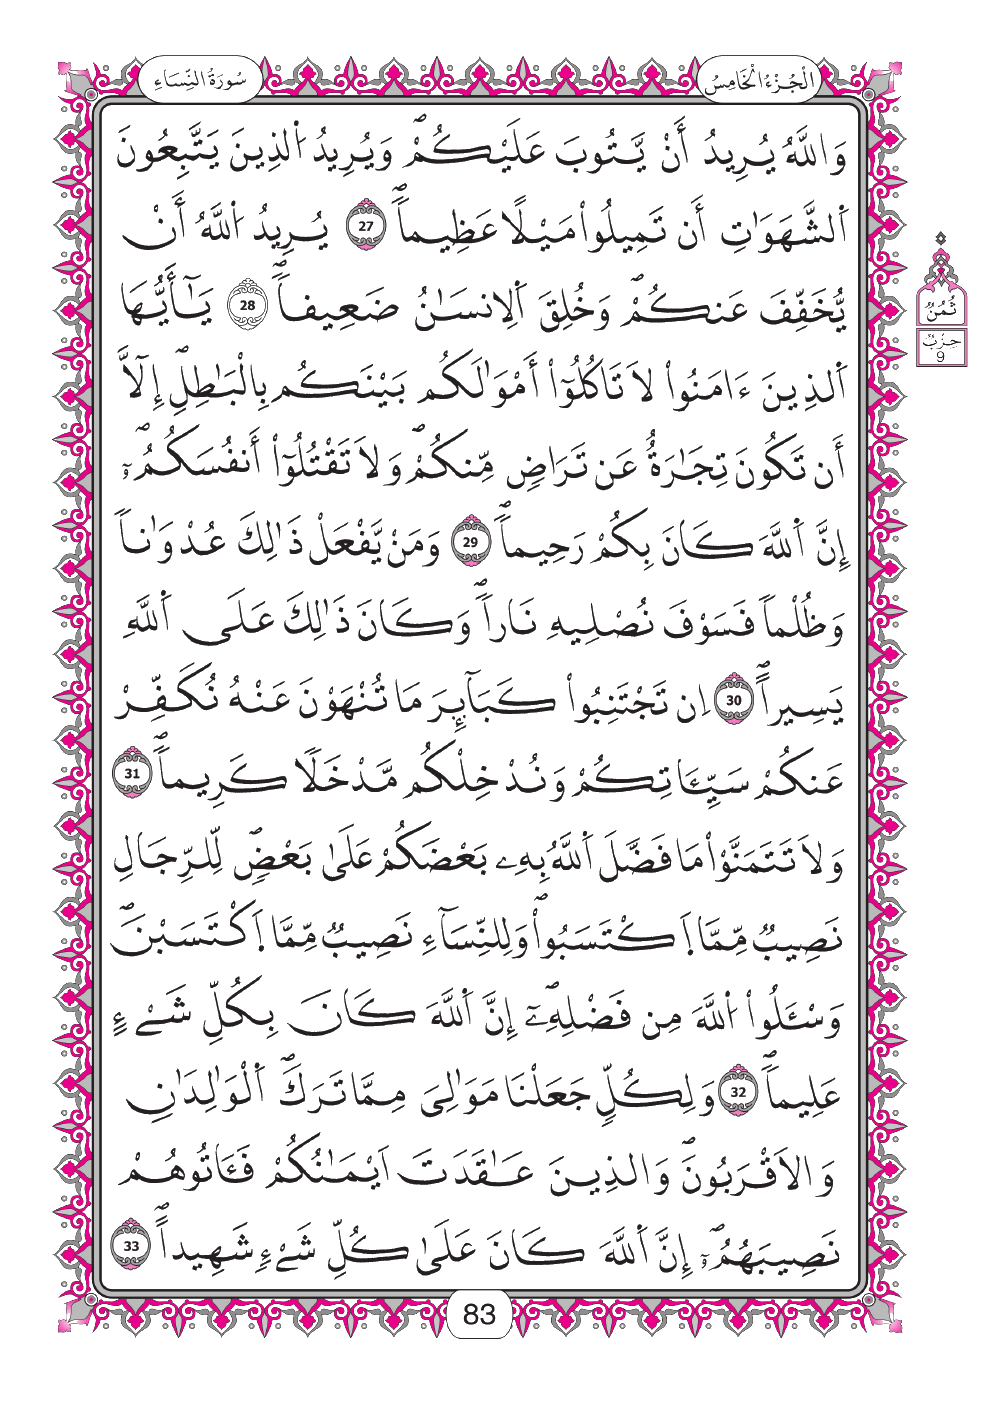 الْجُزْءُ الْخَامِسُ
سُورَةُ النِّسَاءِ
وَاللَّهُ يُرِيدُ أَنْ يَّتُوبَ عَلَيْكُمْۖ وَيُرِيدُ اُ۬لذِينَ يَتَّبِعُونَ
اَ۬لشَّهَوَٰتِ أَن تَمِيلُواْ مَيْلًا عَظِيماًۖ 27 يُرِيدُ اُ۬للَّهُ أَنْ
يُّخَفِّفَ عَنكُمْۖ وَخُلِقَ اَ۬لِانسَٰنُ ضَعِيفاًۖ 28 يَٰٓأَيُّهَا
اَ۬لذِينَ ءَامَنُواْ لَا تَاكُلُوٓاْ أَمْوَٰلَكُم بَيْنَكُم بِالْبَٰطِلِۖ إِلَّآ
أَن تَكُونَ تِجَٰرَةٌ عَن تَرَاضٖ مِّنكُمْۖ وَلَا تَقْتُلُوٓاْ أَنفُسَكُمُۥٓۖ
إِنَّ اَ۬للَّهَ كَانَ بِكُمْ رَحِيماًۖ 29 وَمَنْ يَّفْعَلْ ذَٰلِكَ عُدْوَٰناً
وَظُلْماً فَسَوْفَ نُصْلِيهِ نَاراًۖ وَكَانَ ذَٰلِكَ عَلَى اَ۬للَّهِ
يَسِيراًۖ 30 اِن تَجْتَنِبُواْ كَبَآئِرَ مَا تُنْهَوْنَ عَنْهُ نُكَفِّرْ
عَنكُمْ سَيِّـَٔاتِكُمْ وَنُدْخِلْكُم مَّدْخَلًا كَرِيماًۖ 31
وَلَا تَتَمَنَّوْاْ مَا فَضَّلَ اَ۬للَّهُ بِهِۦ بَعْضَكُمْ عَلَىٰ بَعْضٖۖ لِّلرِّجَالِ
نَصِيبٌ مِّمَّا اَ۪كْتَسَبُواْۖ وَلِلنِّسَآءِ نَصِيبٌ مِّمَّا اَ۪كْتَسَبْنَۖ
وَسْـَٔلُواْ اُ۬للَّهَ مِن فَضْلِهِۦٓۖ إِنَّ اَ۬للَّهَ كَانَ بِكُلِّ شَےْءٍ
عَلِيماًۖ 32 وَلِكُلّٖ جَعَلْنَا مَوَٰلِيَ مِمَّا تَرَكَۖ اَ۬لْوَٰلِدَٰنِ
وَالَاقْرَبُونَۖ وَالذِينَ عَٰقَدَتَ اَيْمَٰنُكُمْ فَـَٔاتُوهُمْ
نَصِيبَهُمُۥٓۖ إِنَّ اَ۬للَّهَ كَانَ عَلَىٰ كُلِّ شَےْءٖ شَهِيداًۖ 33
ثُمُنُ
حِزْبٌ
9
83